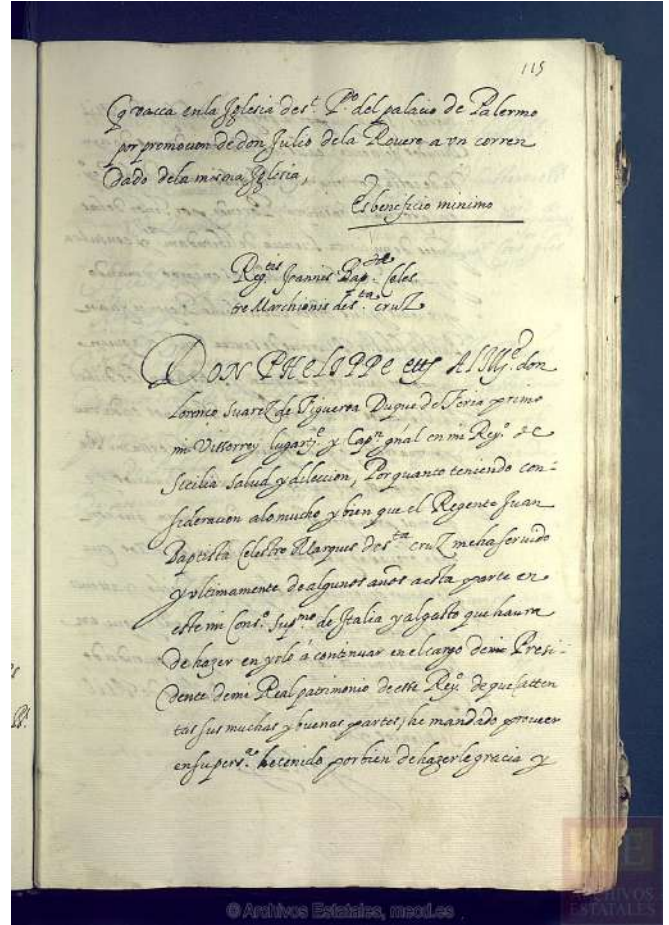 115
q vacca en la Iglesia de st. P.o del palacio de Palermo
por promocion de don Julio dela Rouere a vn corren
dado dela misma Iglesia,
Es beneficio minimo
Reg.tis Joannis Bap.tae Celes
tre Marchionis de s.ta cruZ
DON PHELIPPE etts Al Ill.e don
Lorenço SuareZ de Figueroa Duque de Feria primo
mi Visorrey lugart.e y Cap.n gñal en mi Rey.o de
Sicilia salud y dileccion, Por quanto teniendo con-
sideracion alo mucho y bien que el Regente Juan
Baptista Celestre Marques de s.ta cruZ me ha seruido
y vltimamente de algunos años a esta parte en
este mi Cons.o Sup.mo de Italia y al gasto que haura
de hazer en yrlo á continuar en el cargo de Presi-
dente de mi Real patrimonio de esse Rey.o de que (atten
tas sus muchas y buenas partes) he mandado proueer
en su pers.a he tenido por bien de hazerle gracia y
Ps.
© Archivos Estatales, mecd.es
ARCHIVOS
ESTATALES